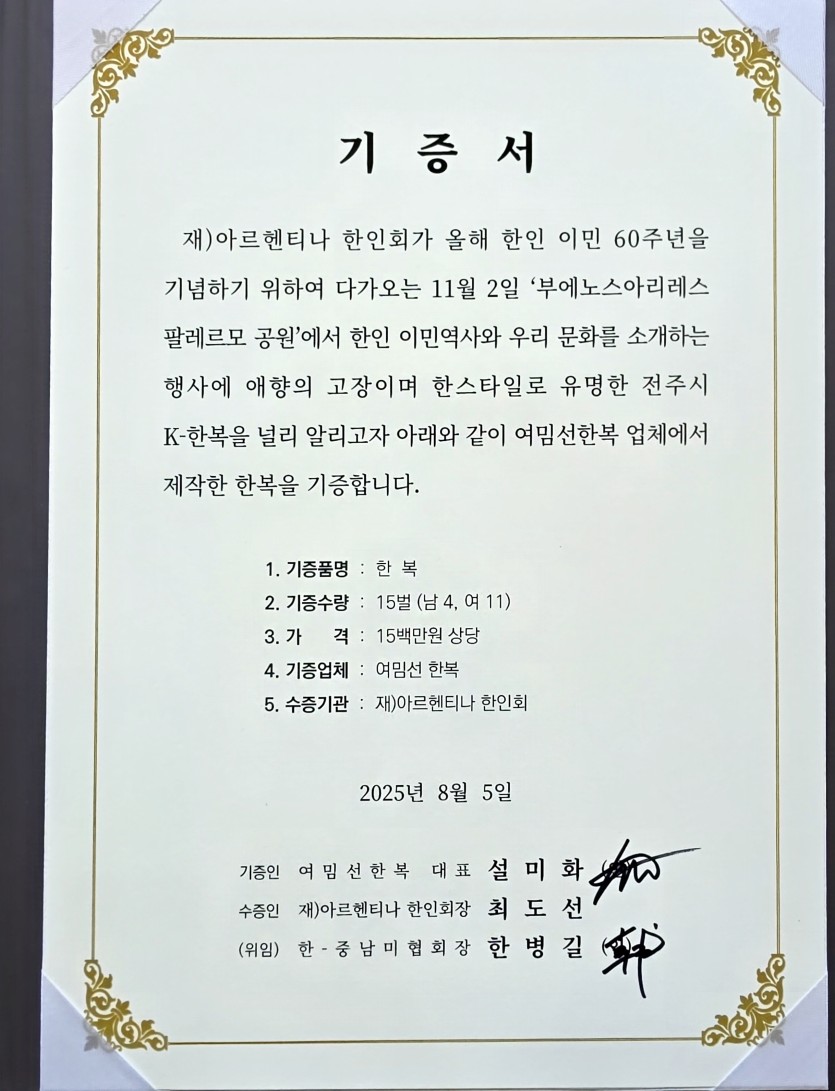 기 증 서
재)아르헨티나 한인회가 올해 한인 이민 60주년을
기념하기 위하여 다가오는 11월 2일 ‘부에노스아리레스
팔레르모 공원’에서 한인 이민역사와 우리 문화를 소개하는
행사에 애향의 고장이며 한스타일로 유명한 전주시
K-한복을 널리 알리고자 아래와 같이 여밈선한복 업체에서
제작한 한복을 기증합니다.
1. 기증품명 : 한 복
2. 기증수량 : 15벌 (남 4, 여 11)
3. 가 격 : 15백만원 상당
4. 기증업체 : 여밈선 한복
5. 수증기관 : 재)아르헨티나 한인회
2025년 8월 5일
기증인 여 밈 선 한 복 대 표 설 미 화
수증인 재)아르헨티나 한인회장 최 도 선
(위임) 한 - 중 남 미 협 회 장 한 병 길